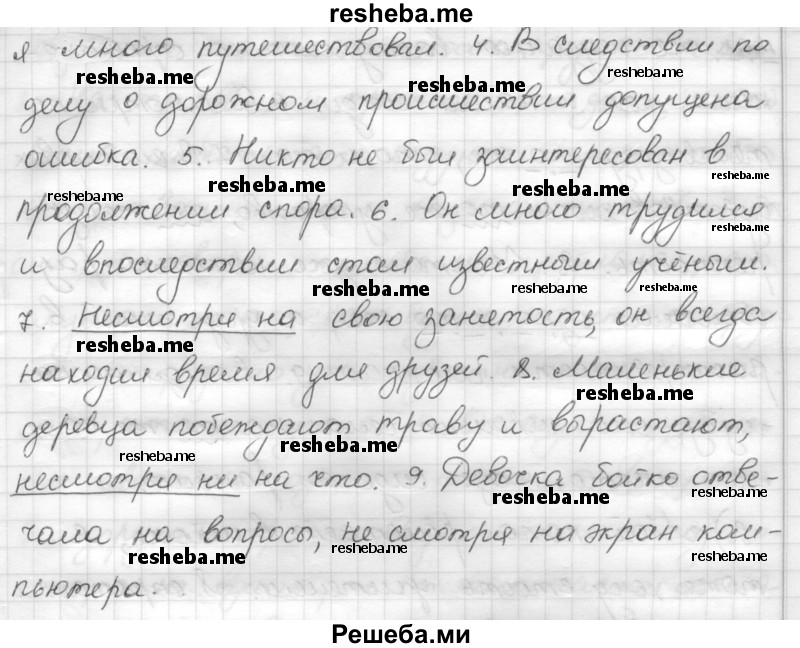 resheba.me
я много путешествовал. 4. В следствии по
resheba.me resheba.me resheba.me
делу о дорожном происшествии допущена
ошибка. 5. Никто не был заинтересован в
resheba.me resheba.me resheba.me resheba.me
продолжении спора. 6. Он много трудился
resheba.me
и впоследствии стал известным учёным.
resheba.me resheba.me resheba.me
7. Несмотря на свою занятость, он всегда
resheba.me
находил время для друзей. 8. Маленькие
resheba.me
деревца побеждают траву и вырастают,
resheba.me resheba.me
несмотря ни на что. 9. Девочка бойко отве-
resheba.me resheba.me
чала на вопросы, не смотря на экран ком-
resheba.me resheba.me resheba.me
пьютера.
Решеба.ми